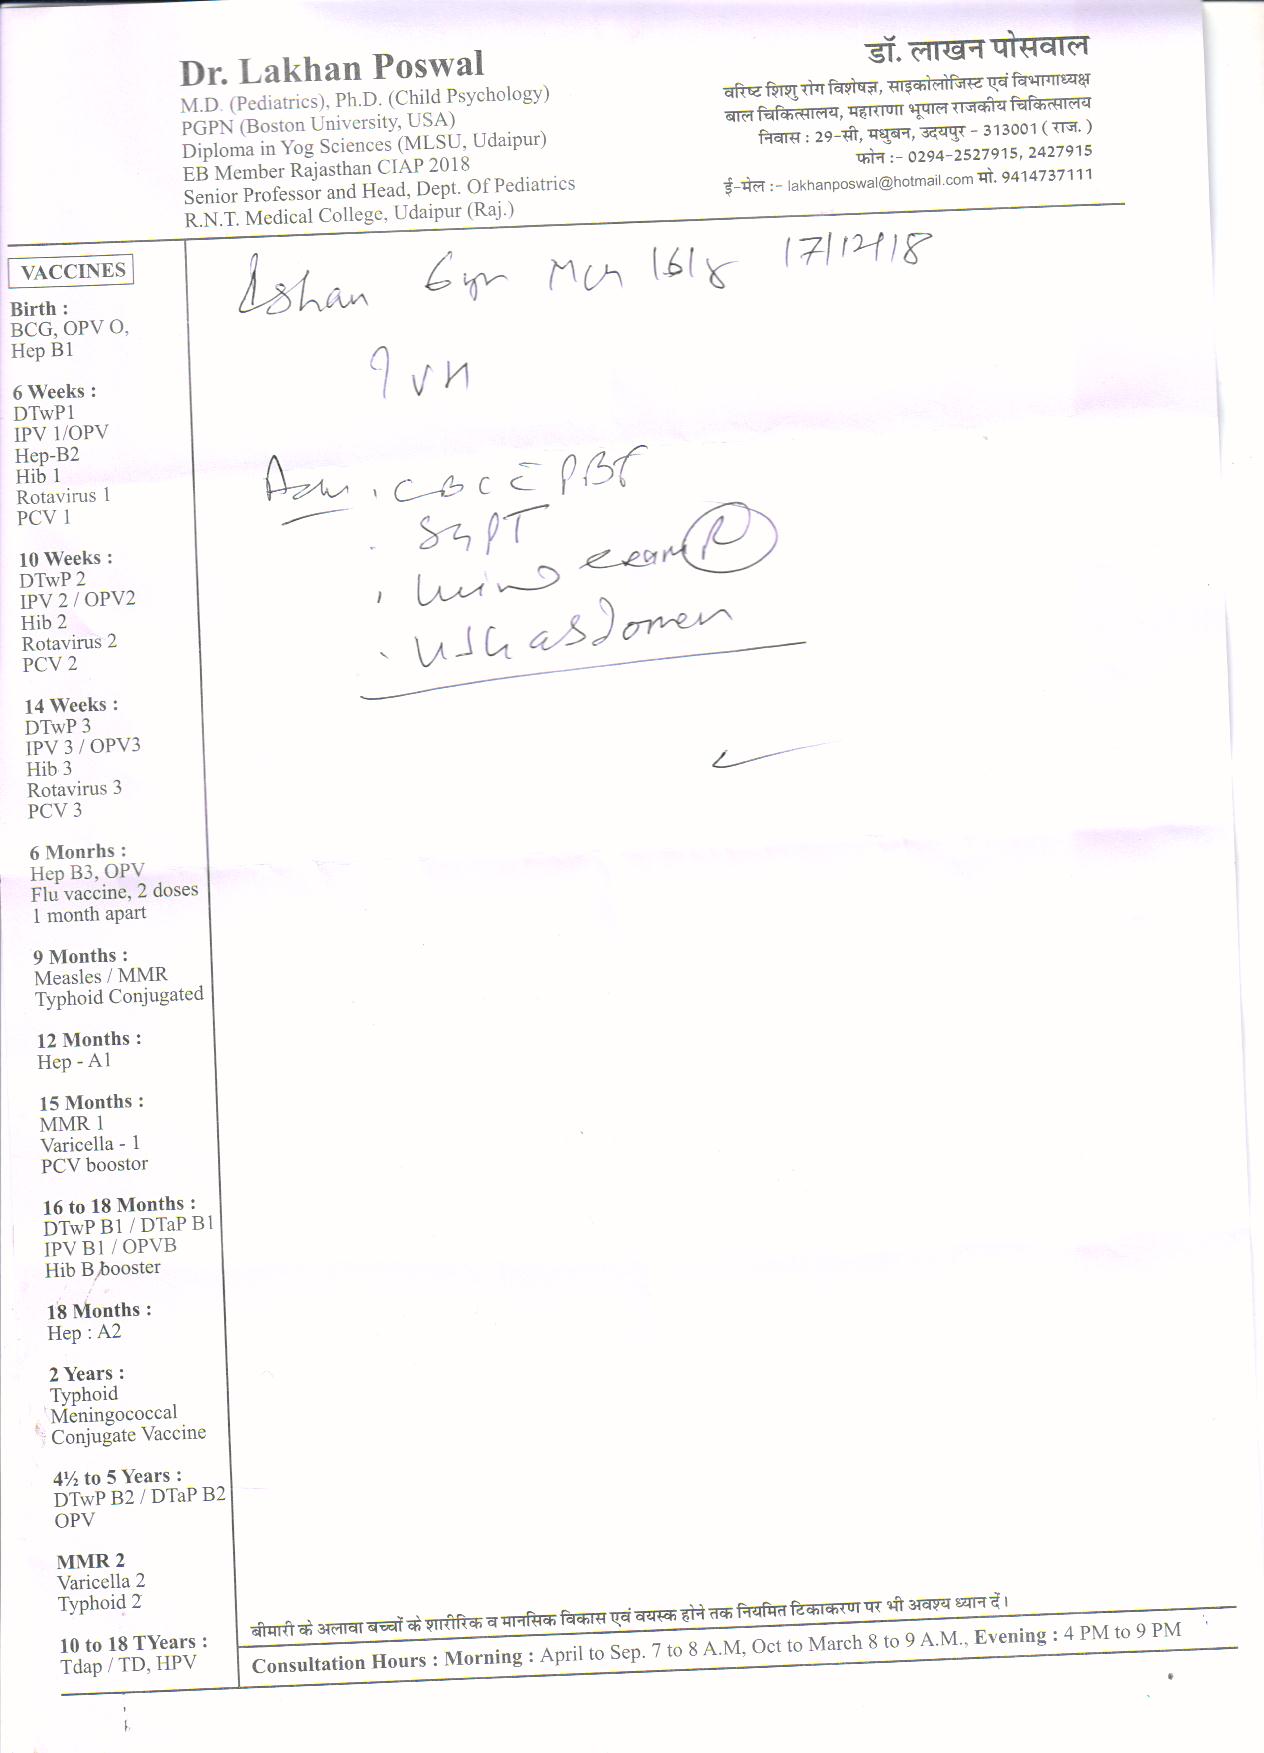 Dr. Lakhan Poswal
M.D. (Pediatrics), Ph.D. (Child Psychology)
PGPN (Boston University, USA)
Diploma in Yog Sciences (MLSU, Udaipur)
EB Member Rajasthan CIAP 2018
Senior Professor and Head, Dept. Of Pediatrics
R.N.T. Medical College, Udaipur (Raj.)
डॉ. लाखन पोसवाल
वरिष्ट शिशु रोग विशेषज्ञ, साइकोलोजिस्ट एवं विभागाध्यक्ष
बाल चिकित्सालय, महाराणा भूपाल राजकीय चिकित्सालय
निवास : 29-सी, मधुबन, उदयपुर - 313001 ( राज. )
फोन :- 0294-2527915, 2427915
ई-मेल :- lakhanposwal@hotmail.com मो. 9414737111
VACCINES
Birth :
BCG, OPV O,
Hep B1
6 Weeks :
DTwP1
IPV 1/OPV
Hep-B2
Hib 1
Rotavirus 1
PCV 1
10 Weeks :
DTwP 2
IPV 2 / OPV2
Hib 2
Rotavirus 2
PCV 2
14 Weeks :
DTwP 3
IPV 3 / OPV3
Hib 3
Rotavirus 3
PCV 3
6 Monrhs :
Hep B3, OPV
Flu vaccine, 2 doses
1 month apart
9 Months :
Measles / MMR
Typhoid Conjugated
12 Months :
Hep - A1
15 Months :
MMR 1
Varicella - 1
PCV boostor
16 to 18 Months :
DTwP B1 / DTaP B1
IPV B1 / OPVB
Hib B booster
18 Months :
Hep : A2
2 Years :
Typhoid
Meningococcal
Conjugate Vaccine
4½ to 5 Years :
DTwP B2 / DTaP B2
OPV
MMR 2
Varicella 2
Typhoid 2
10 to 18 TYears :
Tdap / TD, HPV
Ishan 6yr Mch 17/12/18
? VH
CBC c̄ PBF
SGPT
Urine exam R
USG abdomen
बीमारी के अलावा बच्चों के शारीरिक व मानसिक विकास एवं वयस्क होने तक नियमित टिकाकरण पर भी अवश्य ध्यान दें।
Consultation Hours : Morning : April to Sep. 7 to 8 A.M, Oct to March 8 to 9 A.M., Evening : 4 PM to 9 PM